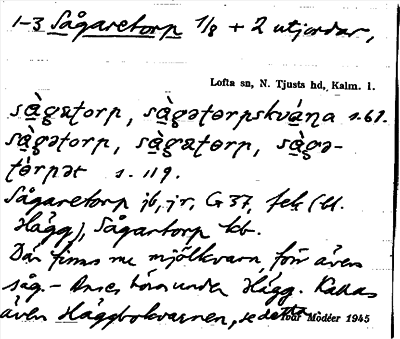 1-3 Sågaretorp 1/8 + 2 utjordar,
Lofta sn, N. Tjusts hd, Kalm. l.
sàgatorp, sàgətorpskvána s.61.
sàgətorp, sàgatorp, sàgə-
tórpət s. 119.
Sågaretorp jb, jr, G 37, fek (bl.
Hägg), Sågartorp kb.
Där finns nu mjölkvarn, förr även
såg. - Anses höra under Hägg. Kallas
även Häggbokvarnen, se detta
Tour Modéer 1945